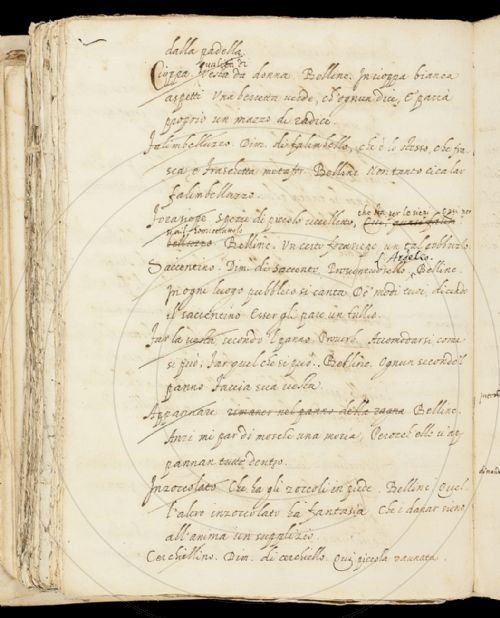 dalla padella.
qualità di
Cioppa. Vesta da donna. Belline. In cioppa bianca
aspetti Una berretta verde, ch'ognun dice, E' parià
proprio un mazzo di radici.
Falimbelluzzo. Dim. di falimbello, che è lo stesso, che fra
sca, o fraschetta metafor. Belline Non tanto cicalar
falimbelluzzo.
Forasiepe Spezie di piccolo uccelletto, che sta per le siepi
belluzzo Belline. Un certo forasiepe un tal gobbuzzo.
L'Ardelio.
Saccentino. Dim. di Saccente Belline.
In ogni luogo pubblico si canta De' modi tuoi, dicendo
il saccentino Esser gli pare un Tullio.
Far la vesta secondo il panno. Proverb. Accomodarsi come
si può, Far quel che si può. Belline. Ognun secondo 'l
panno Faccia sua vesta.
Appannare rimaner nel panno della ragna Belline.
Anzi mi par di morele una moria, Perocch'elle s'ap
pannan tutte dentro.
Inzoccolato Che ha gli zoccoli in piede. Belline Quel
l'altro inzoccolato ha fantasia Che i danar sieno
all'anima un supplizio.
Cerchiellino. Dim. di cerchiello. Qui piccola raunata.